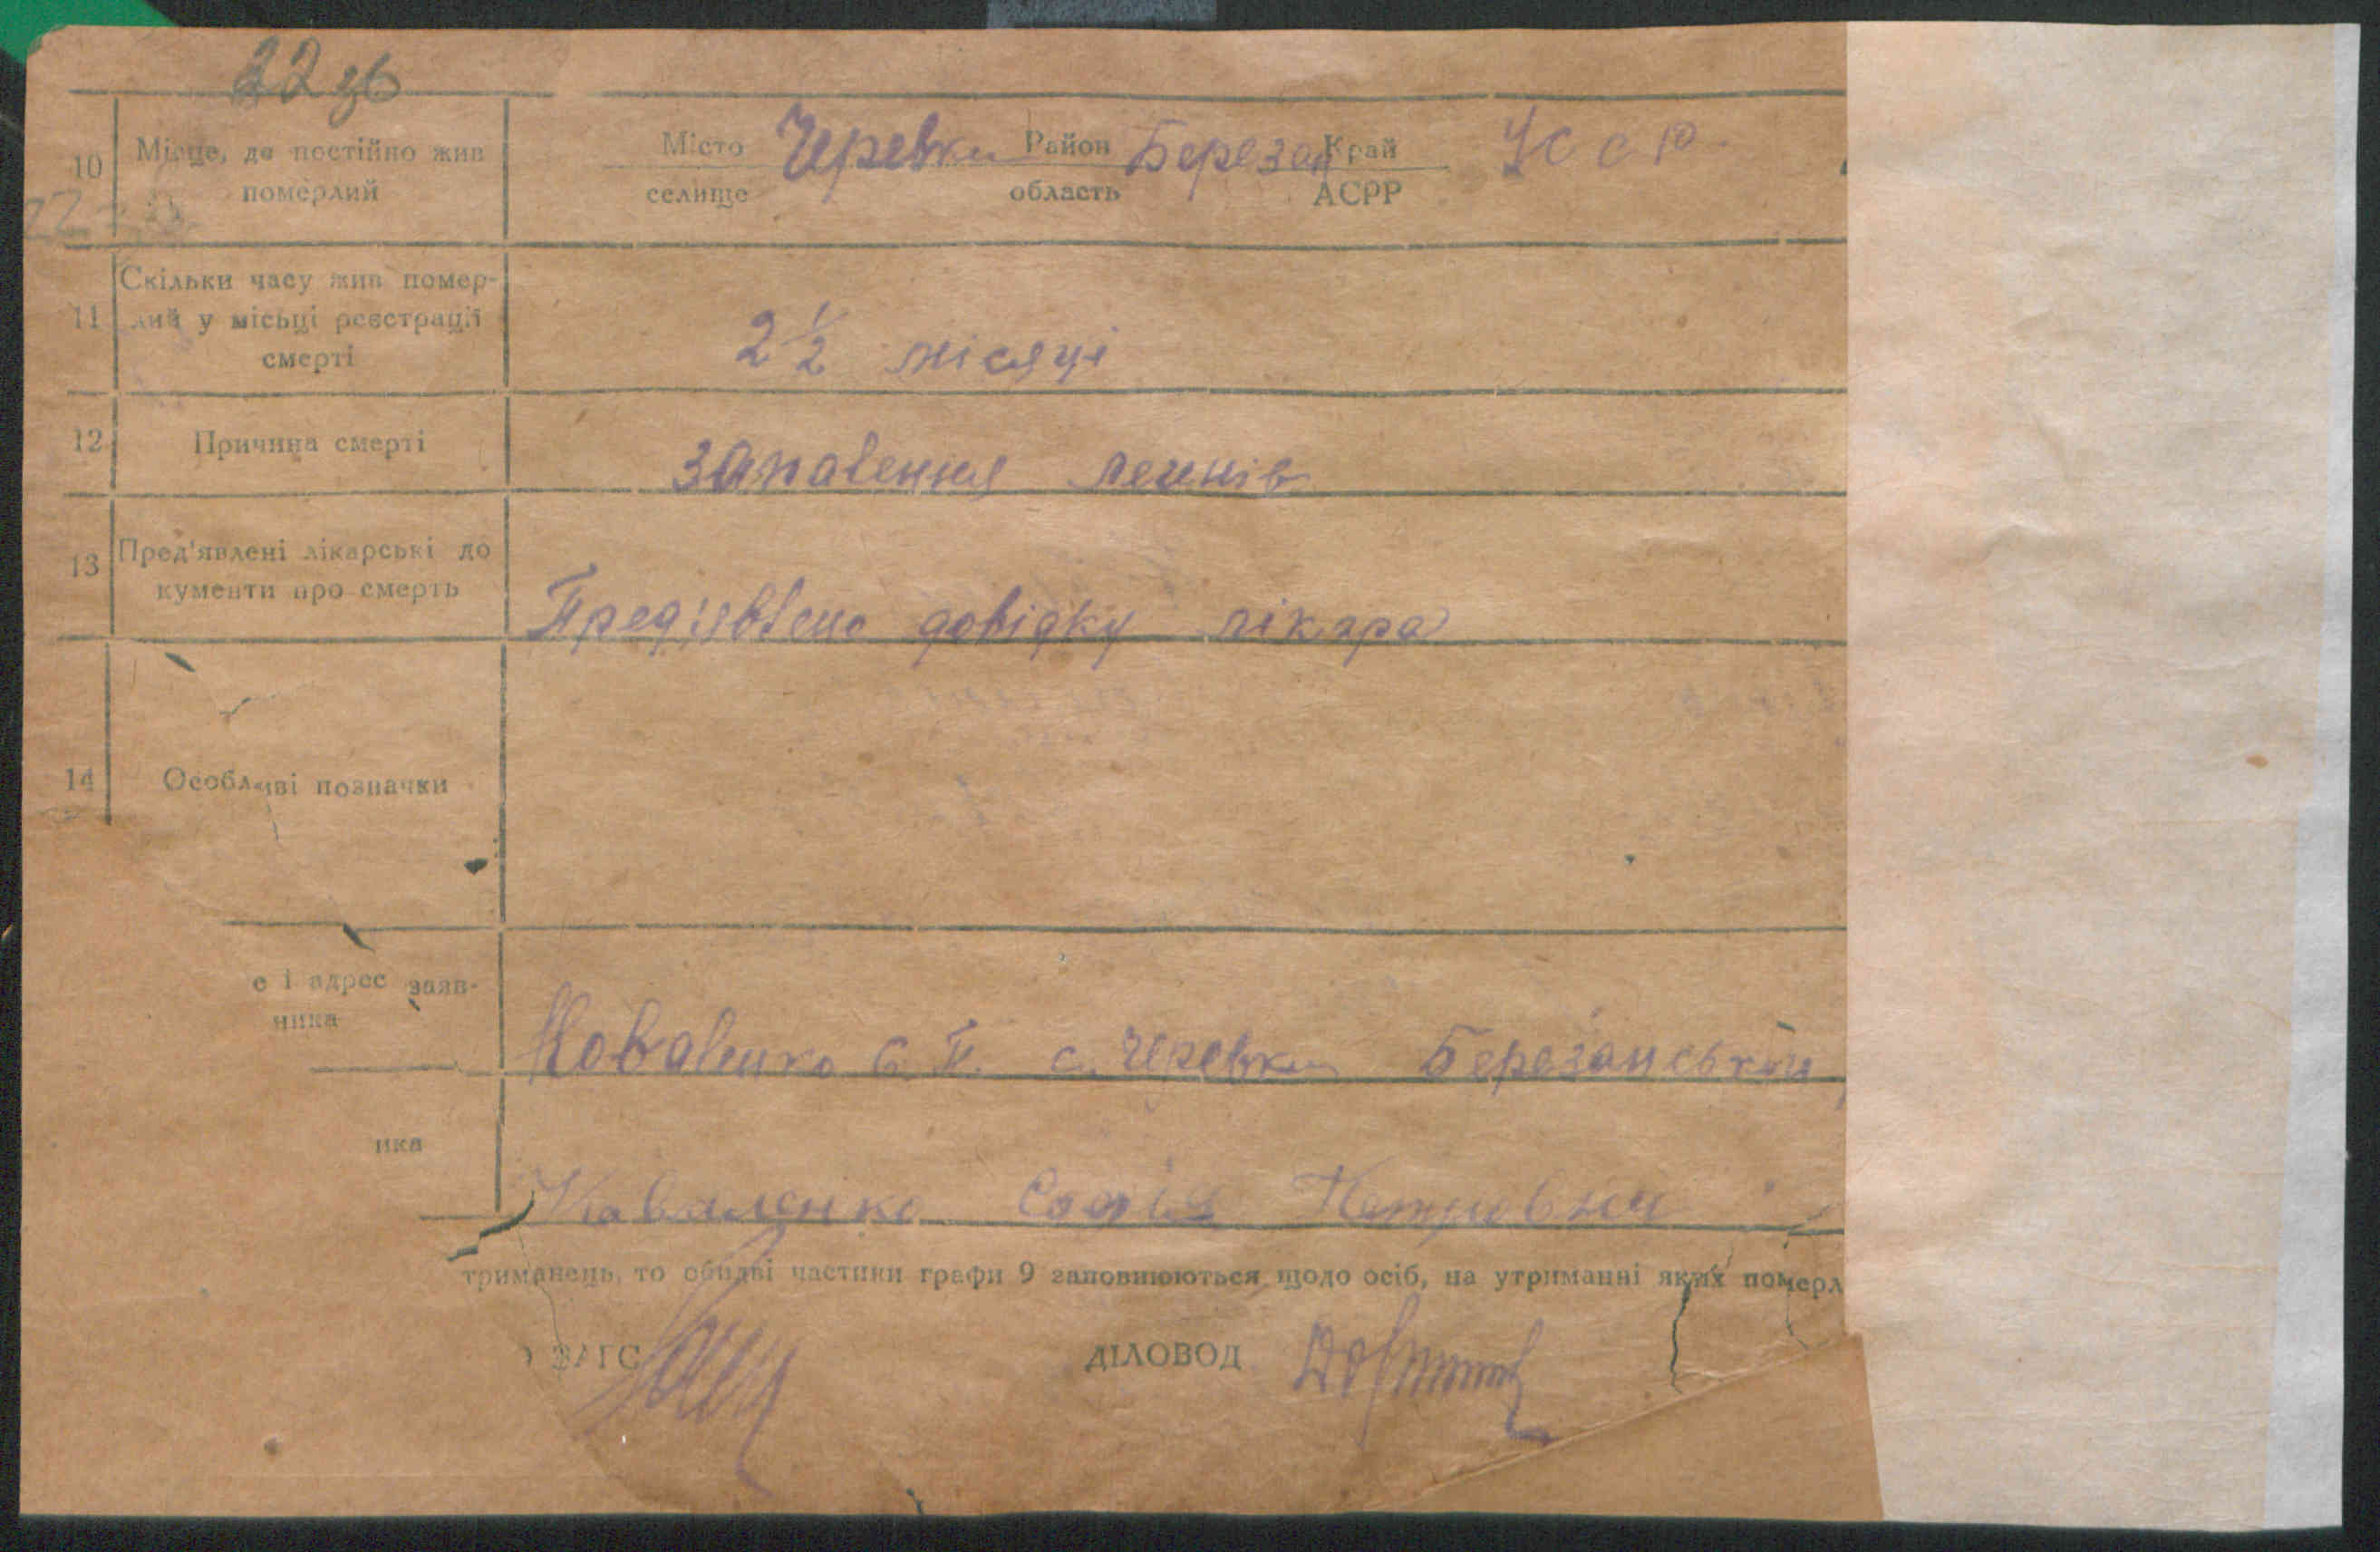 22 зб
10 Місце, де постійно жив померлий
Місто селище Черевки Район область Березан Край АСРР УССР
11 Скільки часу жив помер-
лий у місьці реєстрації
смерті
2½ місяці
12 Причина смерті
запалення легнів
13 Пред'явлені лікарські до
кументи про смерть
Пред'явлено довідку лікара
14 Особливі позначки
е і адрес заяв-
ника
Коваленко С. П. с. Черевки Березанський
ика
Коваленко Софія Петровна
триманець, то обидві частини графи 9 заповнюються щодо осіб, на утриманні яких померл
ЗАГС
ДІЛОВОД